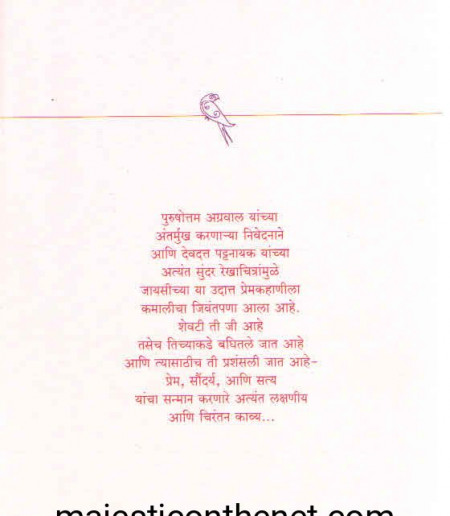 पुरुषोत्तम अग्रवाल यांच्या
अंतर्मुख करणाऱ्या निवेदनाने
आणि देवदत्त पट्टनायक यांच्या
अत्यंत सुंदर रेखाचित्रांमुळे
जायसीच्या या उदात्त प्रेमकहाणीला
कमालीचा जिवंतपणा आला आहे.
शेवटी ती जी आहे
तसेच तिच्याकडे बघितले जात आहे
आणि त्यासाठीच ती प्रशंसली जात आहे-
प्रेम, सौंदर्य, आणि सत्य
यांचा सन्मान करणारे अत्यंत लक्षणीय
आणि चिरंतन काव्य...
majesticonthenet.com